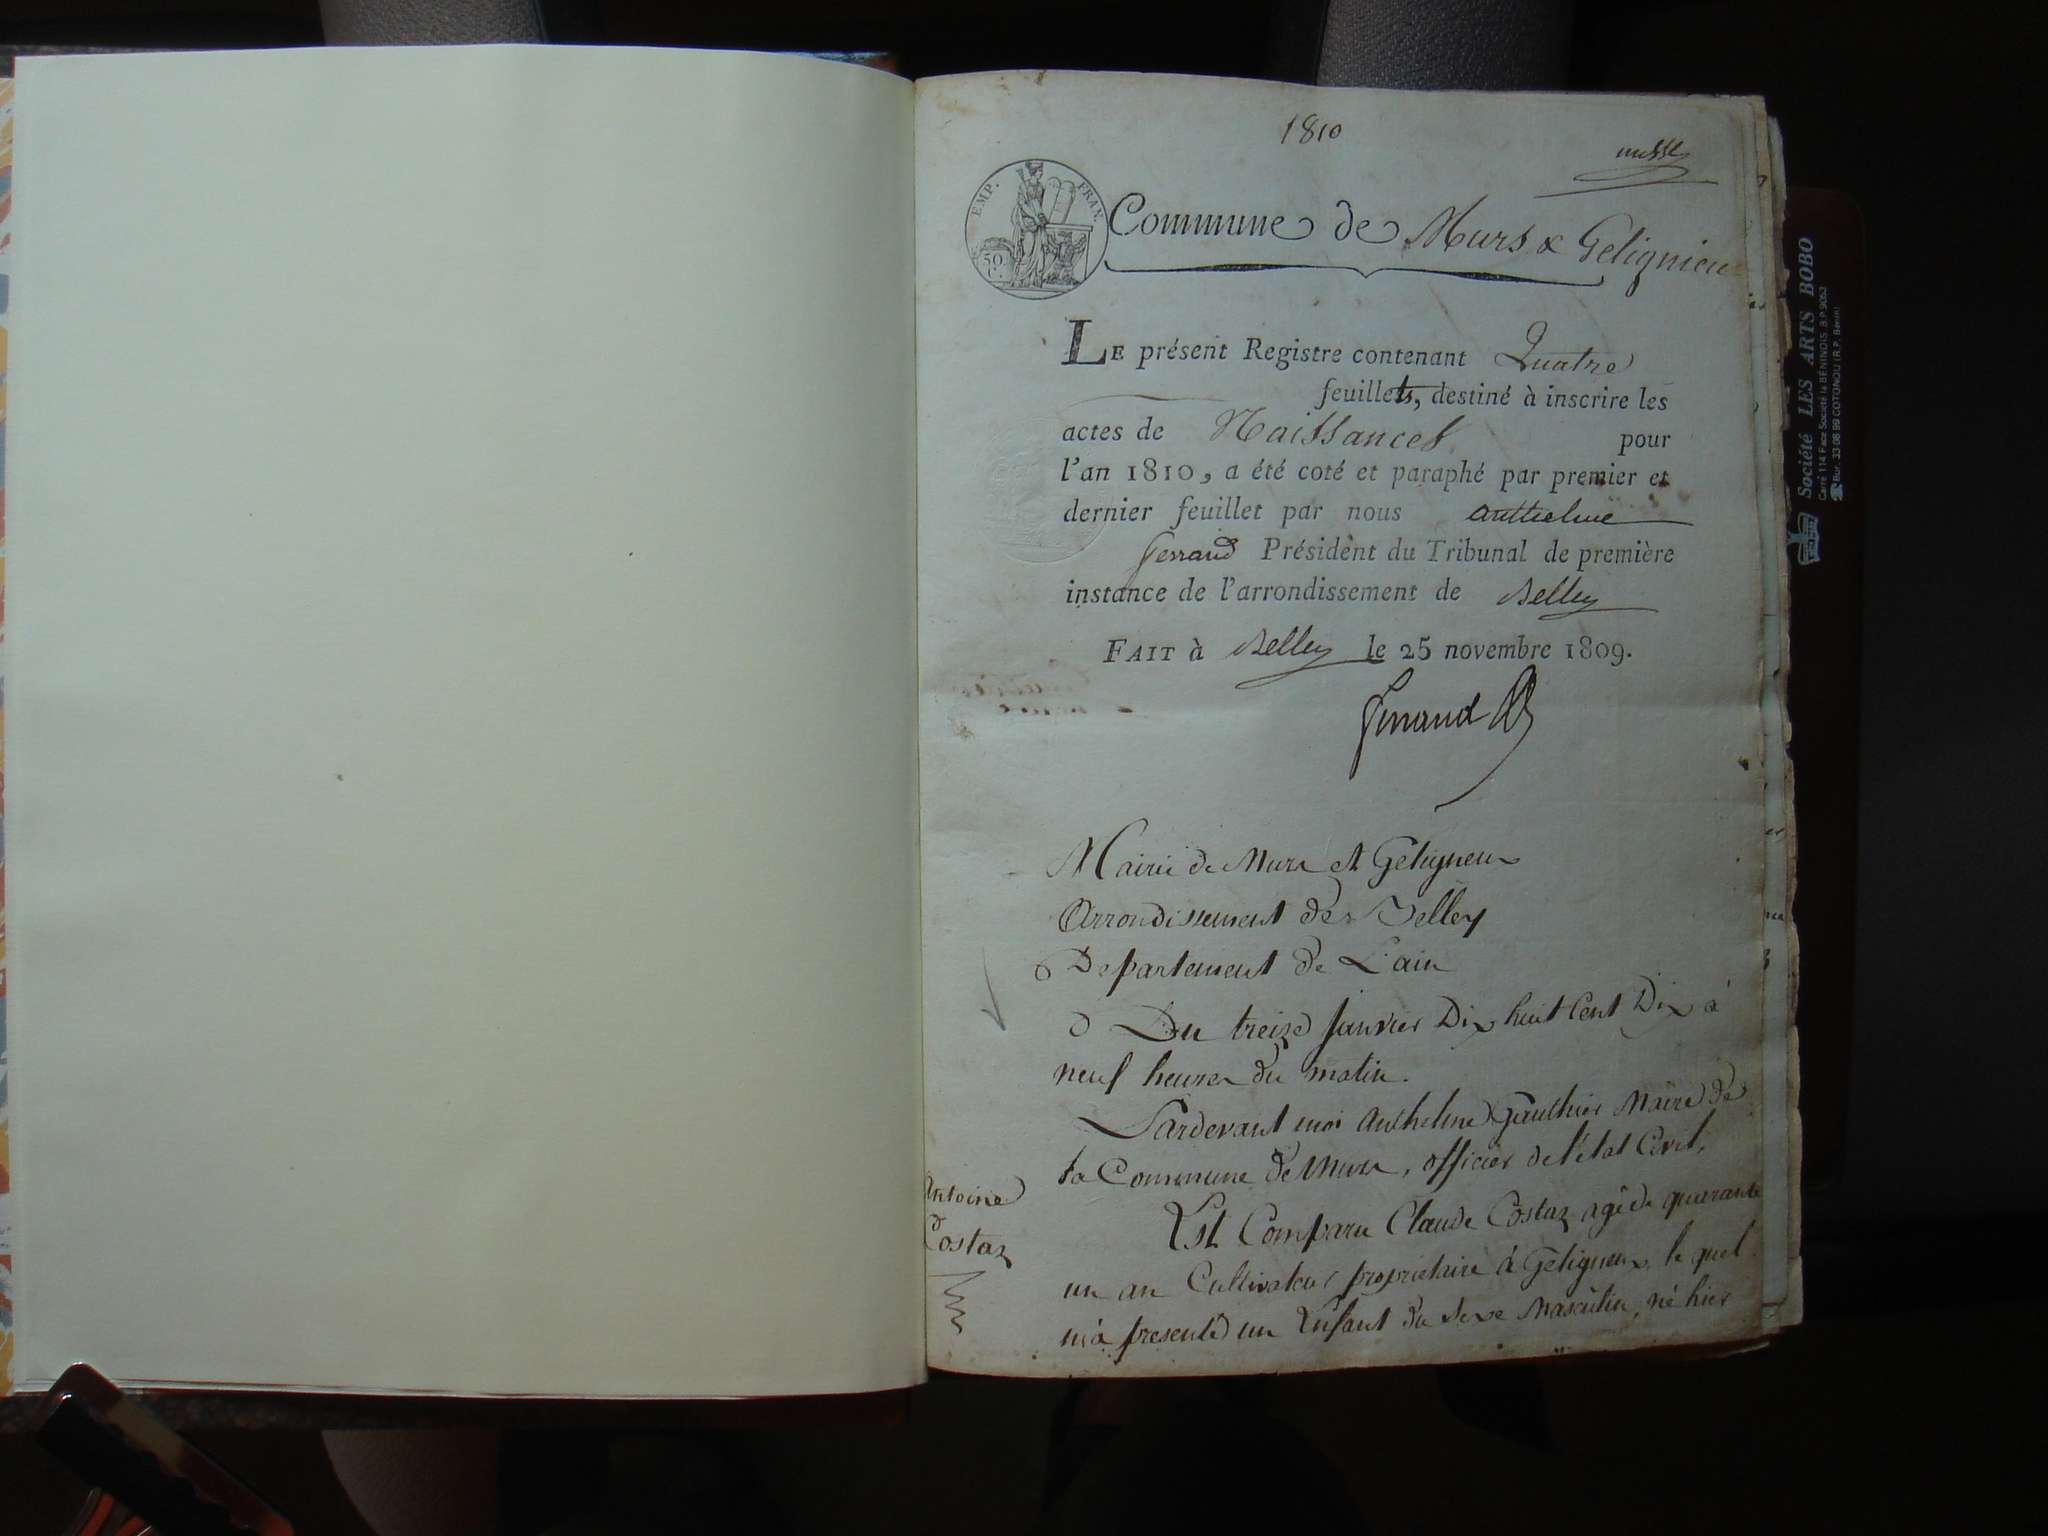 1810
EMP. FRAN.
50 C.
Commune de Murs & Gelignieu
LE présent Registre contenant Quatre
feuillets, destiné à inscrire les
actes de Naissances pour
l'an 1810, a été coté et paraphé par premier et
dernier feuillet par nous anthelme
ferrand Président du Tribunal de première
instance de l'arrondissement de Belley
FAIT à Belley le 25 novembre 1809.
ferrand
Mairie de Murs et Geligneux
Arrondissement de Belley
Departement de L'ain
Du treize janvier Dix huit Cent Dix à
neuf heures du matin.
Pardevant moi anthelme Gauthier Maire de
la Commune de Murs, officier de l'état Civil,
Est Comparu Claude Costaz agé de quarante
un an Cultivateur propriétaire à Geligneux, le quel
m'a presenté un Enfant du Sexe Masculin, né hier
Antoine
Costaz
Société LES ARTS BOBO
Carré 114 Face Société la BÉNINOIS B.P. 9053
Bur. 33-08 99 COTONOU (R.P. Bénin)